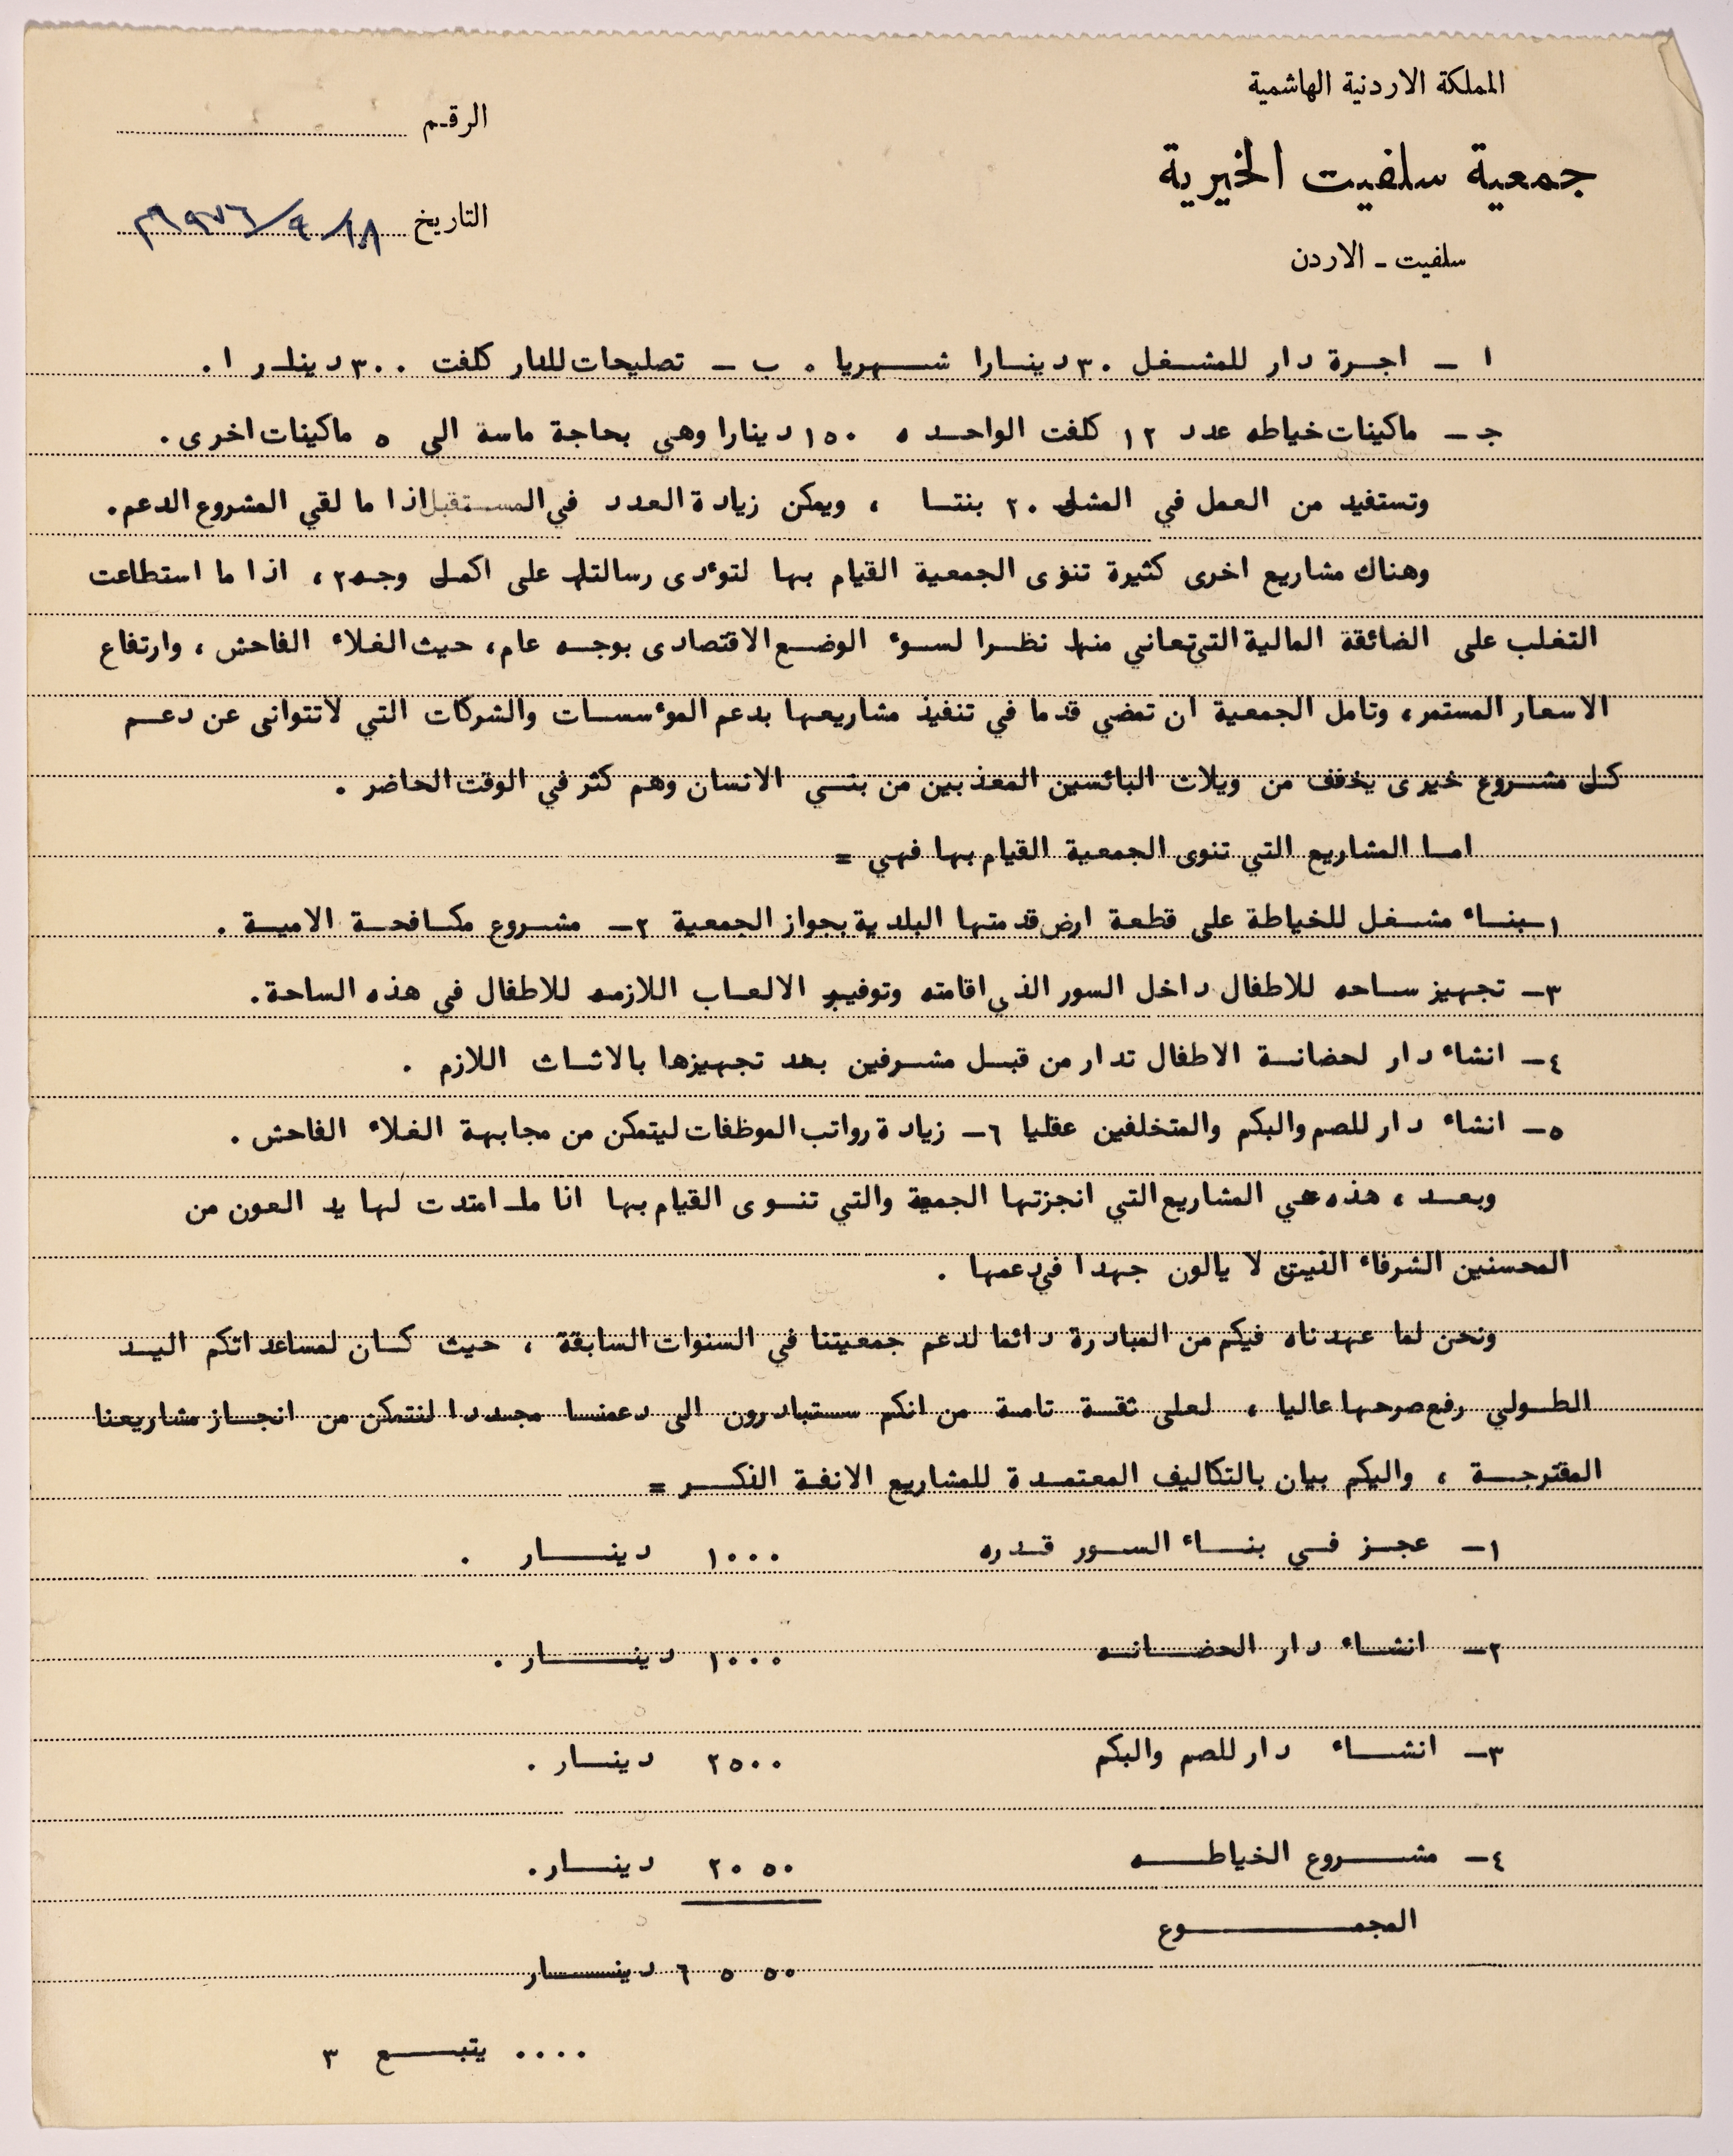 المملكة الاردنية الهاشمية
جمعية سلفيت الخيرية
سلفيت - الاردن
الرقم
التاريخ ١٨/٩/١٩٧٦م
ا - اجرة دار للمشغل ٣٠ دينارا شهريا . ب - تصليحات للدار كلفت ٣٠٠ دينار ا .
جـ - ماكينات خياطه عدد ١٢ كلفت الواحده ١٥٠ دينارا وهي بحاجة ماسة الى ٥ ماكينات اخرى .
وتستفيد من العمل في المشل ٢٠ بنتا ، ويمكن زيادة العدد في المستقبل اذا ما لقي المشروع الدعم .
وهناك مشاريع اخرى كثيرة تنوى الجمعية القيام بها لتوءدى رسالتها على اكمل وجه ، اذا ما استطاعت
التغلب على الضائقة المالية التي تعاني منها نظرا لسوء الوضع الاقتصادى بوجه عام، حيث الغلاء الفاحش ، وارتفاع
الاسعار المستمر، وتامل الجمعية ان تمضي قدما في تنفيذ مشاريعها بدعم الموءسسات والشركات التي لاتتوانى عن دعم
كل مشروع خيرى يخفف من ويلات البائسين المعذبين من بني الانسان وهم كثر في الوقت الحاضر .
اما المشاريع التي تنوى الجمعية القيام بها فهي =
١- بناء مشغل للخياطة على قطعة ارض قدمتها البلدية بجواز الجمعية ٢- مشروع مكافحة الامية .
٣- تجهيز ساحه للاطفال داخل السور الذي اقامته وتوفير الالعاب اللازمه للاطفال في هذه الساحة .
٤- انشاء دار لحضانة الاطفال تدار من قبل مشرفين بعد تجهيزها بالاثاث اللازم .
٥- انشاء دار للصم والبكم والمتخلفين عقليا ٦- زيادة رواتب الموظفات ليتمكن من مجابهة الغلاء الفاحش .
وبعد ، هذه هي المشاريع التي انجزتها الجمعية والتي تنوى القيام بها اذا ما امتدت لها يد العون من
المحسنين الشرفاء الذين لا يالون جهدا في دعمها .
ونحن لما عهدناه فيكم من المبادرة دائما لدعم جمعيتنا في السنوات السابقة ، حيث كان لمساعداتكم اليد
الطولي رفع صرحها عاليا ، لعلى ثقة تامة من انكم ستبادرون الى دعمنا مجددا لنتمكن من انجاز مشاريعنا
المقترحة ، واليكم بيان بالتكاليف المعتمدة للمشاريع الانفة الذكر =
١- عجز في بناء السور قدره ١٠٠٠ دينار .
٢- انشاء دار الحضانه ١٠٠٠ دينار .
٣- انشاء دار للصم والبكم ٢٥٠٠ دينار .
٤- مشروع الخياطه ٢٠٥٠ دينار .
المجموع
٦٥٥٠ دينار
.... يتبع ٣